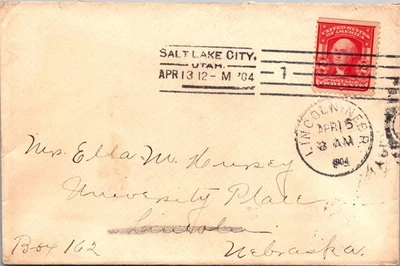 SALT LAKE CITY,
UTAH.
APR 13 12-M '04
1
UNITED STATES
OF AMERICA
LINCOLN, NEBR.
APR 15
8 AM
1904
Mrs. Ella M. Hussey
University Place
Lincoln
Box 162
Nebraska.